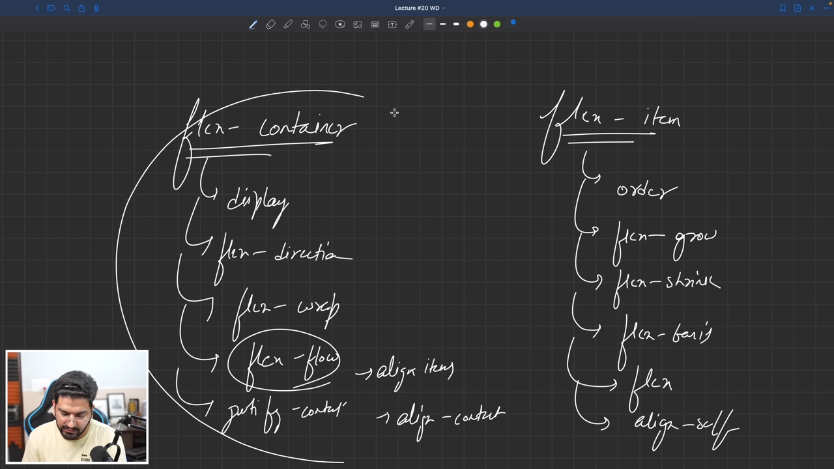 Lecture #20 WD
flex - container
display
flex - direction
flex - wrap
flex - flow
justify - content
→ align items
→ align - content
flex - item
order
flex - grow
flex - shrink
flex - basis
flex
align - self